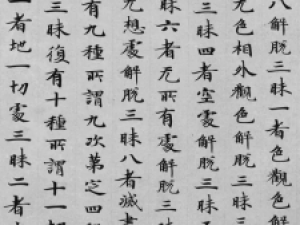 八解脫三昧一者色觀色解
无色相外觀色解脫三昧
三昧四者空處解脫三昧
昧六者无所有處解脫三
无想處解脫三昧八者滅盡
有九種所謂九次第定四
三昧復有十種所謂十一切
者地一切處三昧二者